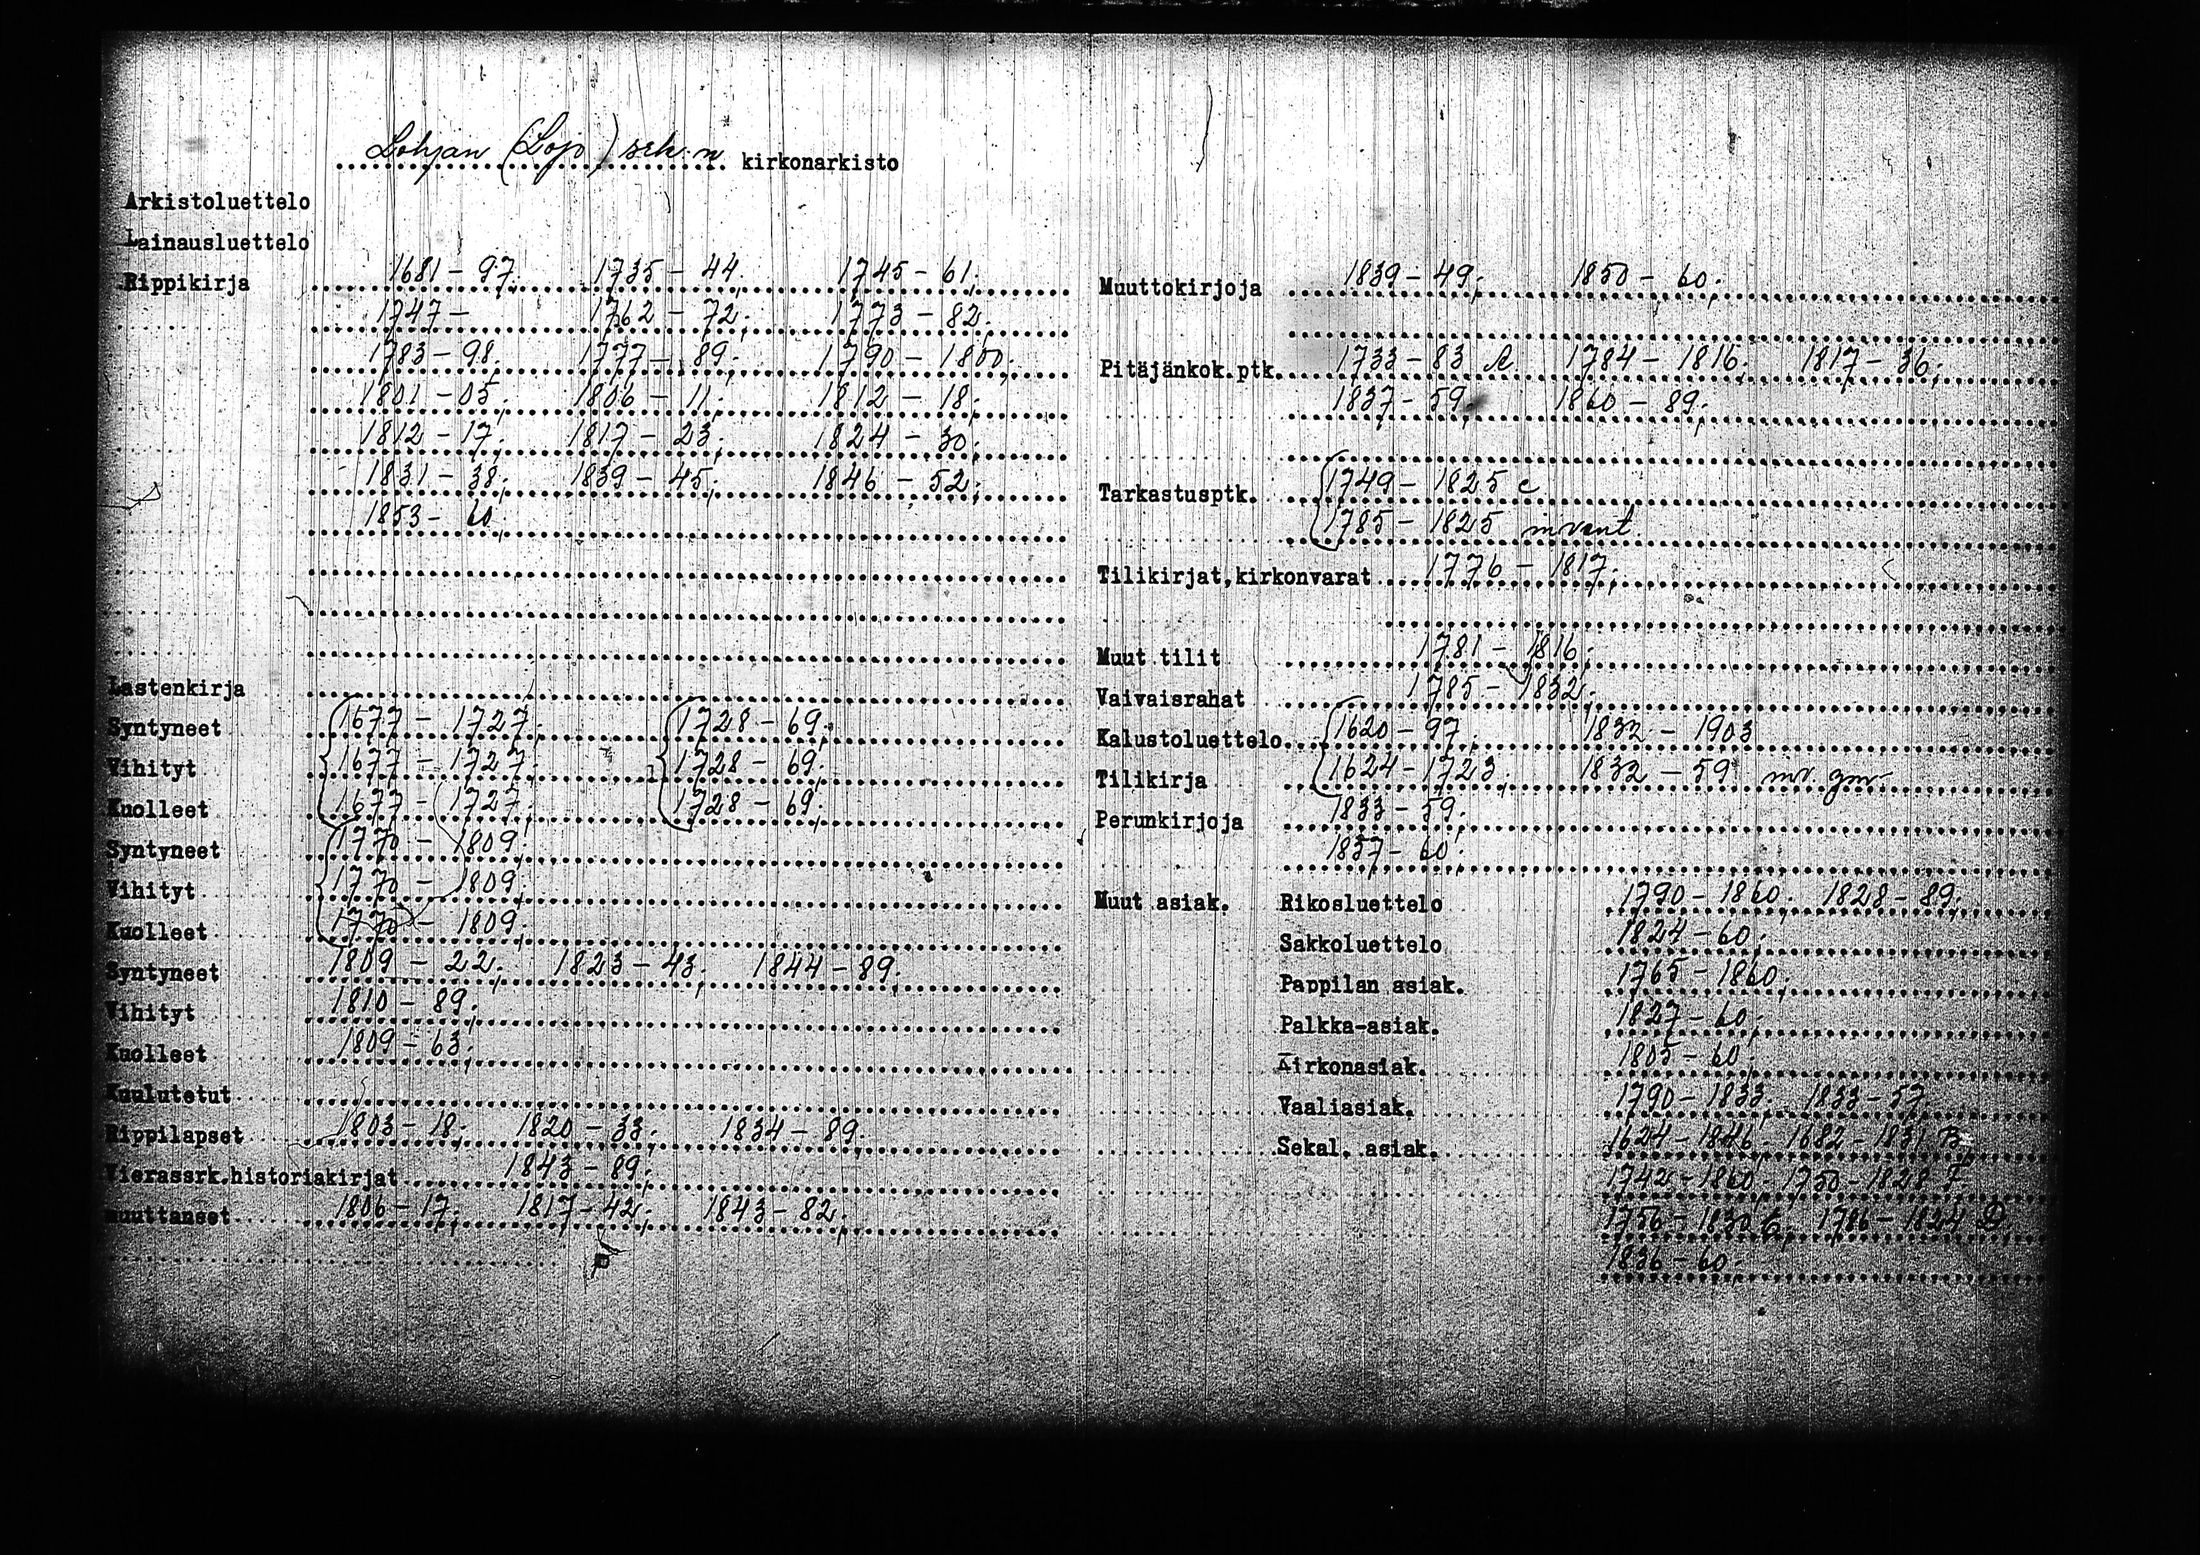 Lohjan (Lojo) srk:n kirkonarkisto
Arkistoluettelo
Lainausluettelo
Rippikirja 1681-97; 1735-44; 1745-61;
1747- 1762-72; 1773-82;
1783-98; 1777-89; 1790-1800;
1801-05; 1806-11; 1812-18;
1812-17; 1817-23; 1824-30;
1831-38; 1839-45; 1846-52;
1853-60;
Lastenkirja
Syntyneet 1677-1727; 1728-69;
Vihityt 1677-1727; 1728-69;
Kuolleet 1677-1727; 1728-69;
Syntyneet 1770-1809;
Vihityt 1770-1809;
Kuolleet 1770-1809;
Syntyneet 1809-22; 1823-43; 1844-89;
Vihityt 1810-89;
Kuolleet 1809-63;
Kuulutetut
Rippilapset 1803-18; 1820-33; 1834-89;
Vierassrk.historiakirjat 1843-89;
Muuttaneet 1806-17; 1817-42; 1843-82;
Muuttokirjoja 1839-49; 1850-60;
Pitäjänkok.ptk. 1733-83 1784-1816; 1817-36;
1837-59; 1860-89;
Tarkastusptk. 1749-1825 c
1785-1825
Tilikirjat,kirkonvarat 1776-1817;
Muut tilit 1781-1816;
Vaivaisrahat 1785-1832;
Kalustoluettelo 1620-97; 1832-1903
Tilikirja 1624-1723; 1832-59
Perunkirjoja 1833-59;
1857-60;
Muut asiak. Rikosluettelo 1790-1860; 1828-89;
Sakkoluettelo 1824-60;
Pappilan asiak. 1765-1860;
Palkka-asiak. 1827-60;
Kirkonasiak. 1805-60;
Vaaliasiak. 1790-1833; 1833-57
Sekal. asiak. 1624-1846; 1682-1831 B;
1742-1860; 1750-1828 F
1756-1830 E; 1786-1824 D
1836-60;